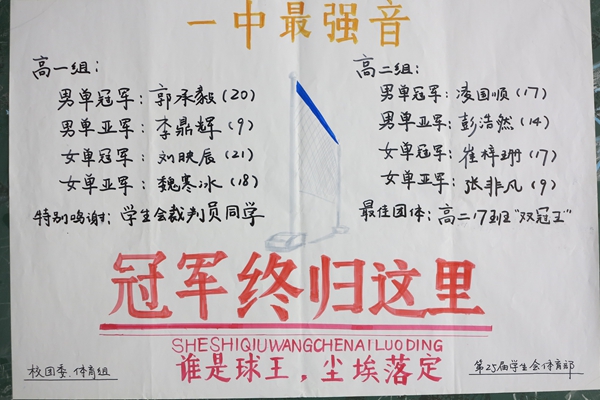 一中最强音
高一组：
男单冠军：郭承毅（20）
男单亚军：李鼎辉（9）
女单冠军：刘映辰（21）
女单亚军：魏寒冰（18）
特别鸣谢：学生会裁判员同学
高二组：
男单冠军：凌国顺（17）
男单亚军：彭浩然（14）
女单冠军：崔梓珊（17）
女单亚军：张非凡（9）
最佳团体：高二17班“双冠王”
冠军终归这里
SHESHIQIUWANGCHENAILUODING
谁是球王，尘埃落定
校团委、体育组
第25届学生会体育部